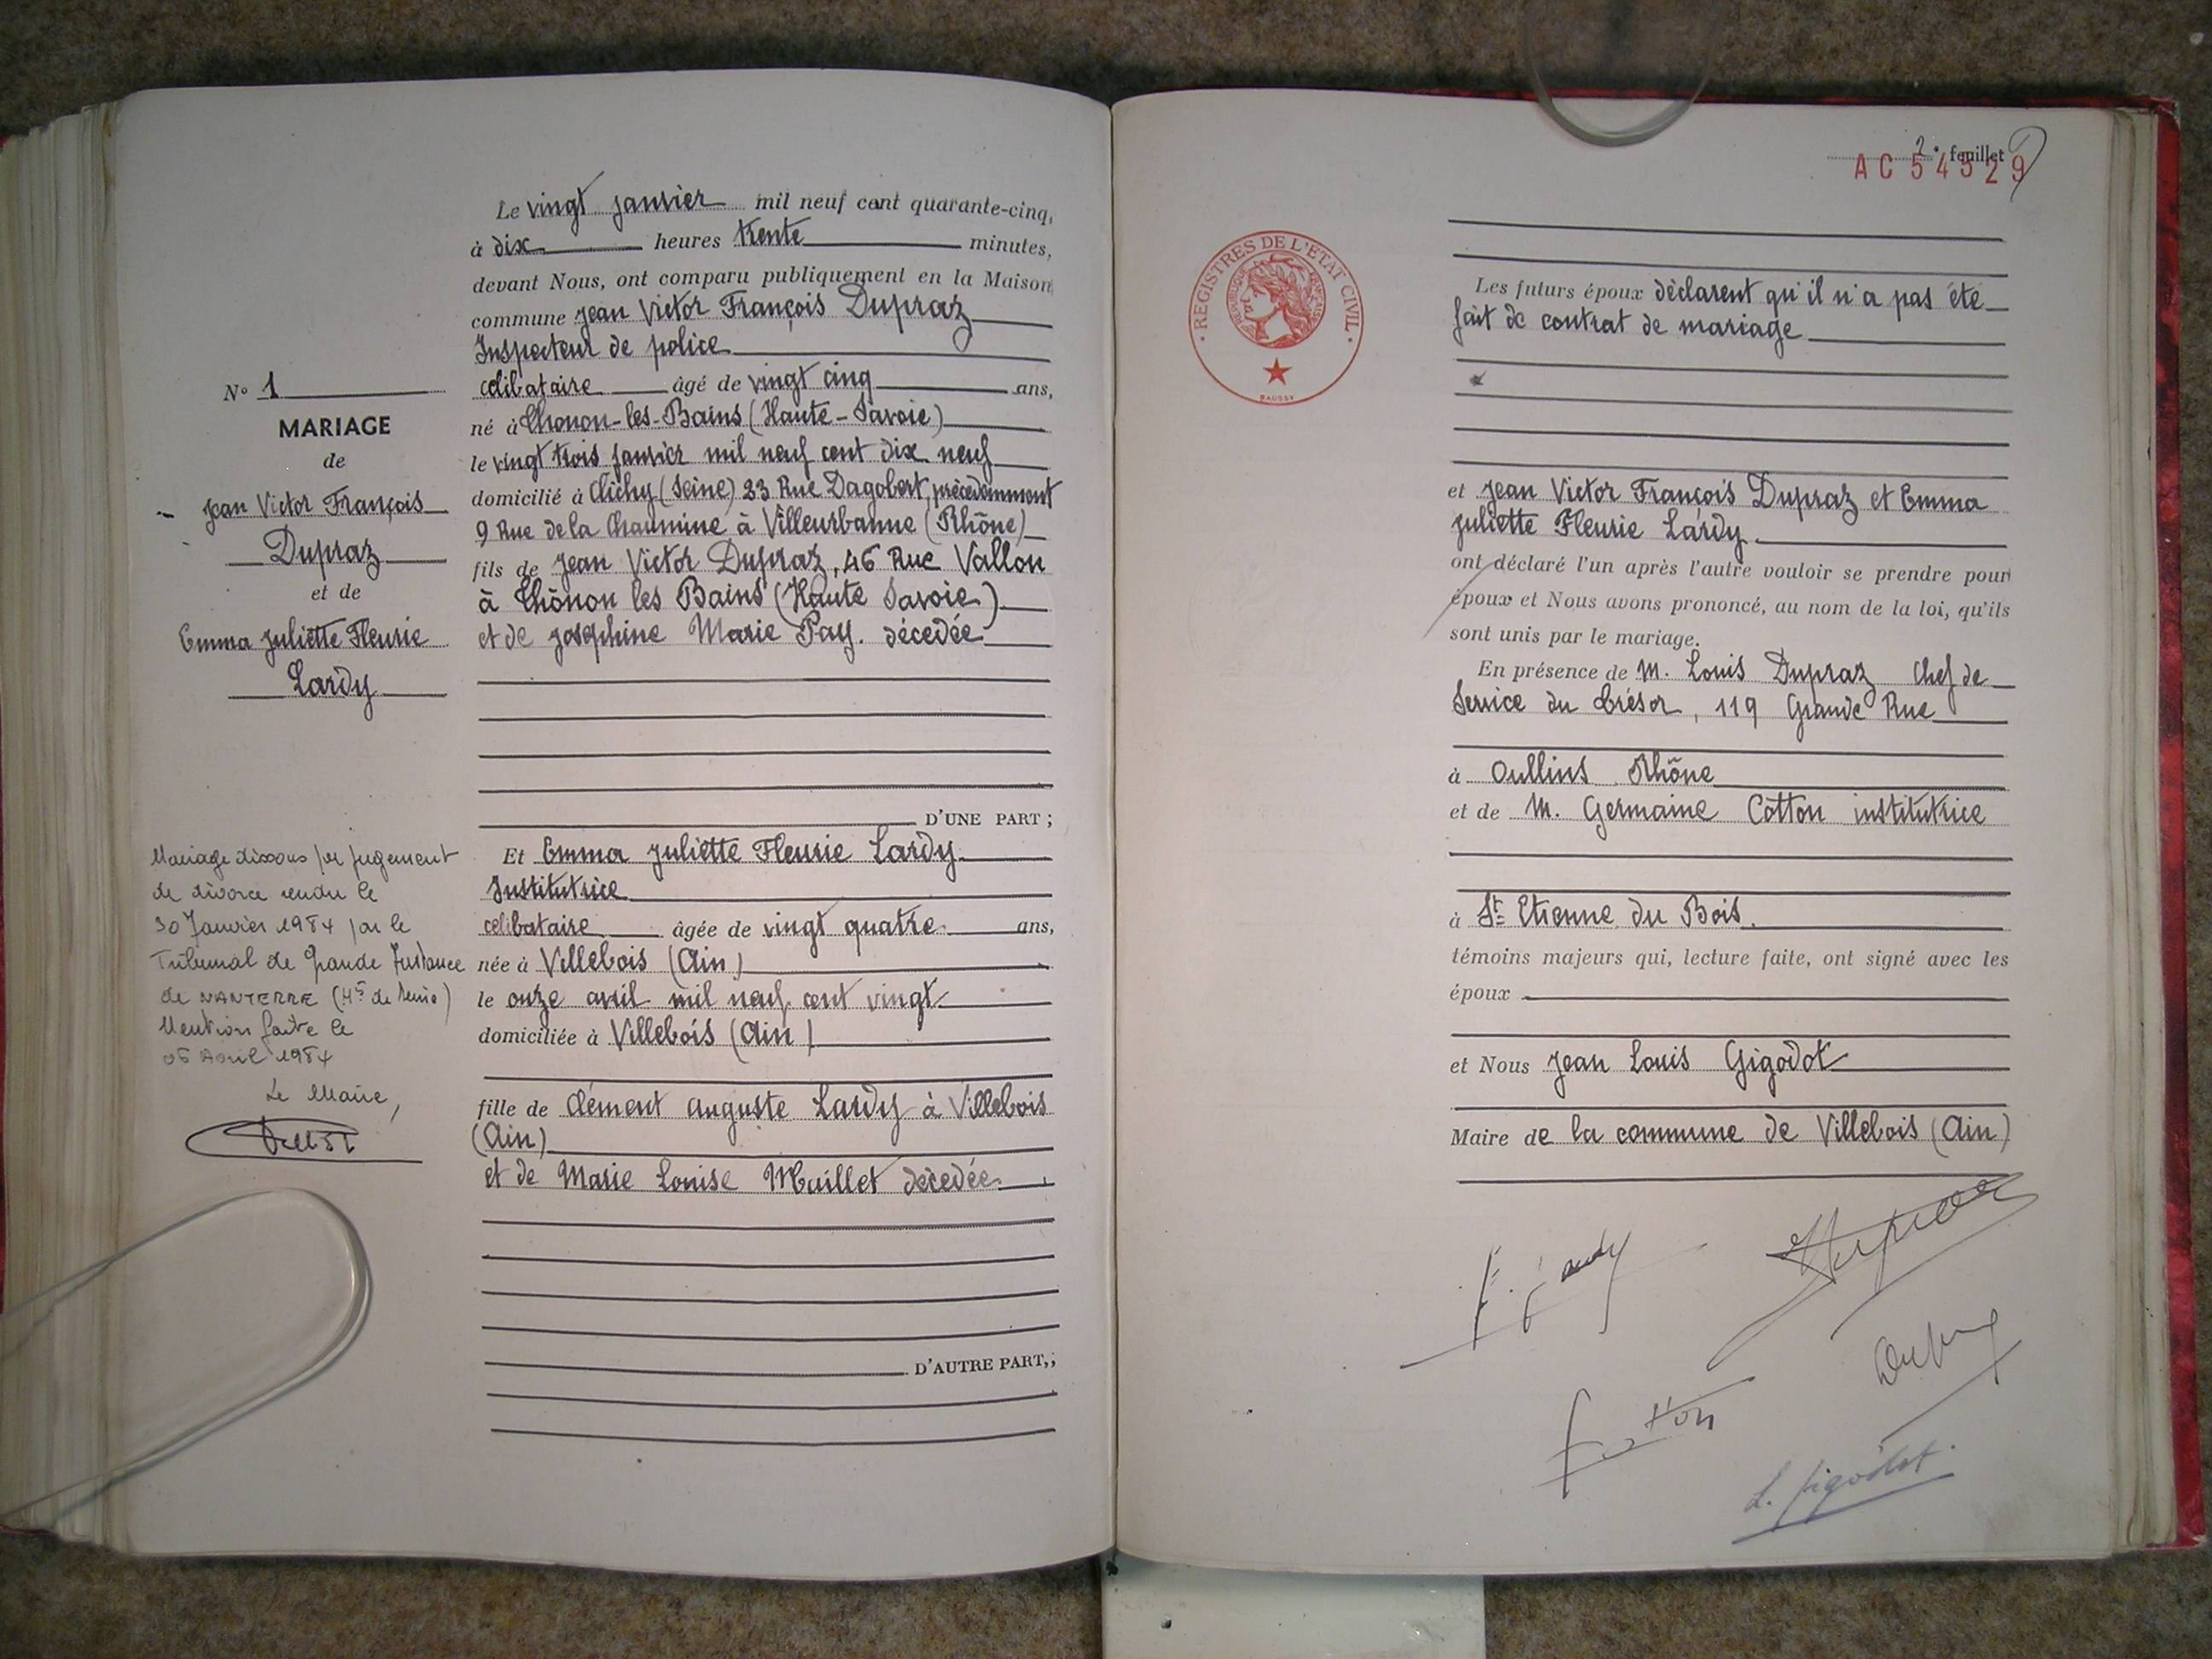 N° 1
MARIAGE
de
Jean Victor François
Dupraz
et de
Emma Juliette Fleurie
Lardy
Mariage dissous par jugement
de divorce rendu le
30 Janvier 1984 par le
Tribunal de Grande Instance
de NANTERRE (Hts de Seine)
Mention faite le
06 Avril 1984
Le Maire,
Le vingt janvier mil neuf cent quarante-cinq,
à dix heures trente minutes,
devant Nous, ont comparu publiquement en la Maison
commune Jean Victor François Dupraz
Inspecteur de police
célibataire âgé de vingt cinq ans,
né à Thonon-les-Bains (Haute-Savoie)
le vingt trois janvier mil neuf cent dix neuf
domicilié à Clichy (Seine) 23 Rue Dagobert, précédemment
9 Rue de la à Villeurbanne (Rhône)
fils de Jean Victor Dupraz, 46 Rue Vallon
à Thônon les Bains (Haute Savoie)
et de Joséphine Marie Pay. décedée
D'UNE PART ;
Et Emma Juliette Fleurie Lardy
Institutrice
célibataire âgée de vingt quatre ans,
née à Villebois (Ain)
le onze avril mil neuf cent vingt
domiciliée à Villebois (Ain)
fille de Clément Auguste Lardy à Villebois
(Ain)
et de Marie Louise décedée
D'AUTRE PART,;
2e feuillet
AC 54529
REGISTRES DE L'ETAT CIVIL
Les futurs époux déclarent qu'il n'a pas été
fait de contrat de mariage
et Jean Victor François Dupraz et Emma
Juliette Fleurie Lardy
ont déclaré l'un après l'autre vouloir se prendre pour
époux et Nous avons prononcé, au nom de la loi, qu'ils
sont unis par le mariage.
En présence de M. Louis Dupraz Chef de
Service du Trésor, 119 Grande Rue
à Oullins Rhône
et de M. Germaine Cotton institutrice
à St Etienne du Bois.
témoins majeurs qui, lecture faite, ont signé avec les
époux
et Nous Jean Louis Gigodot
Maire de la commune de Villebois (Ain)
L. Gigodot